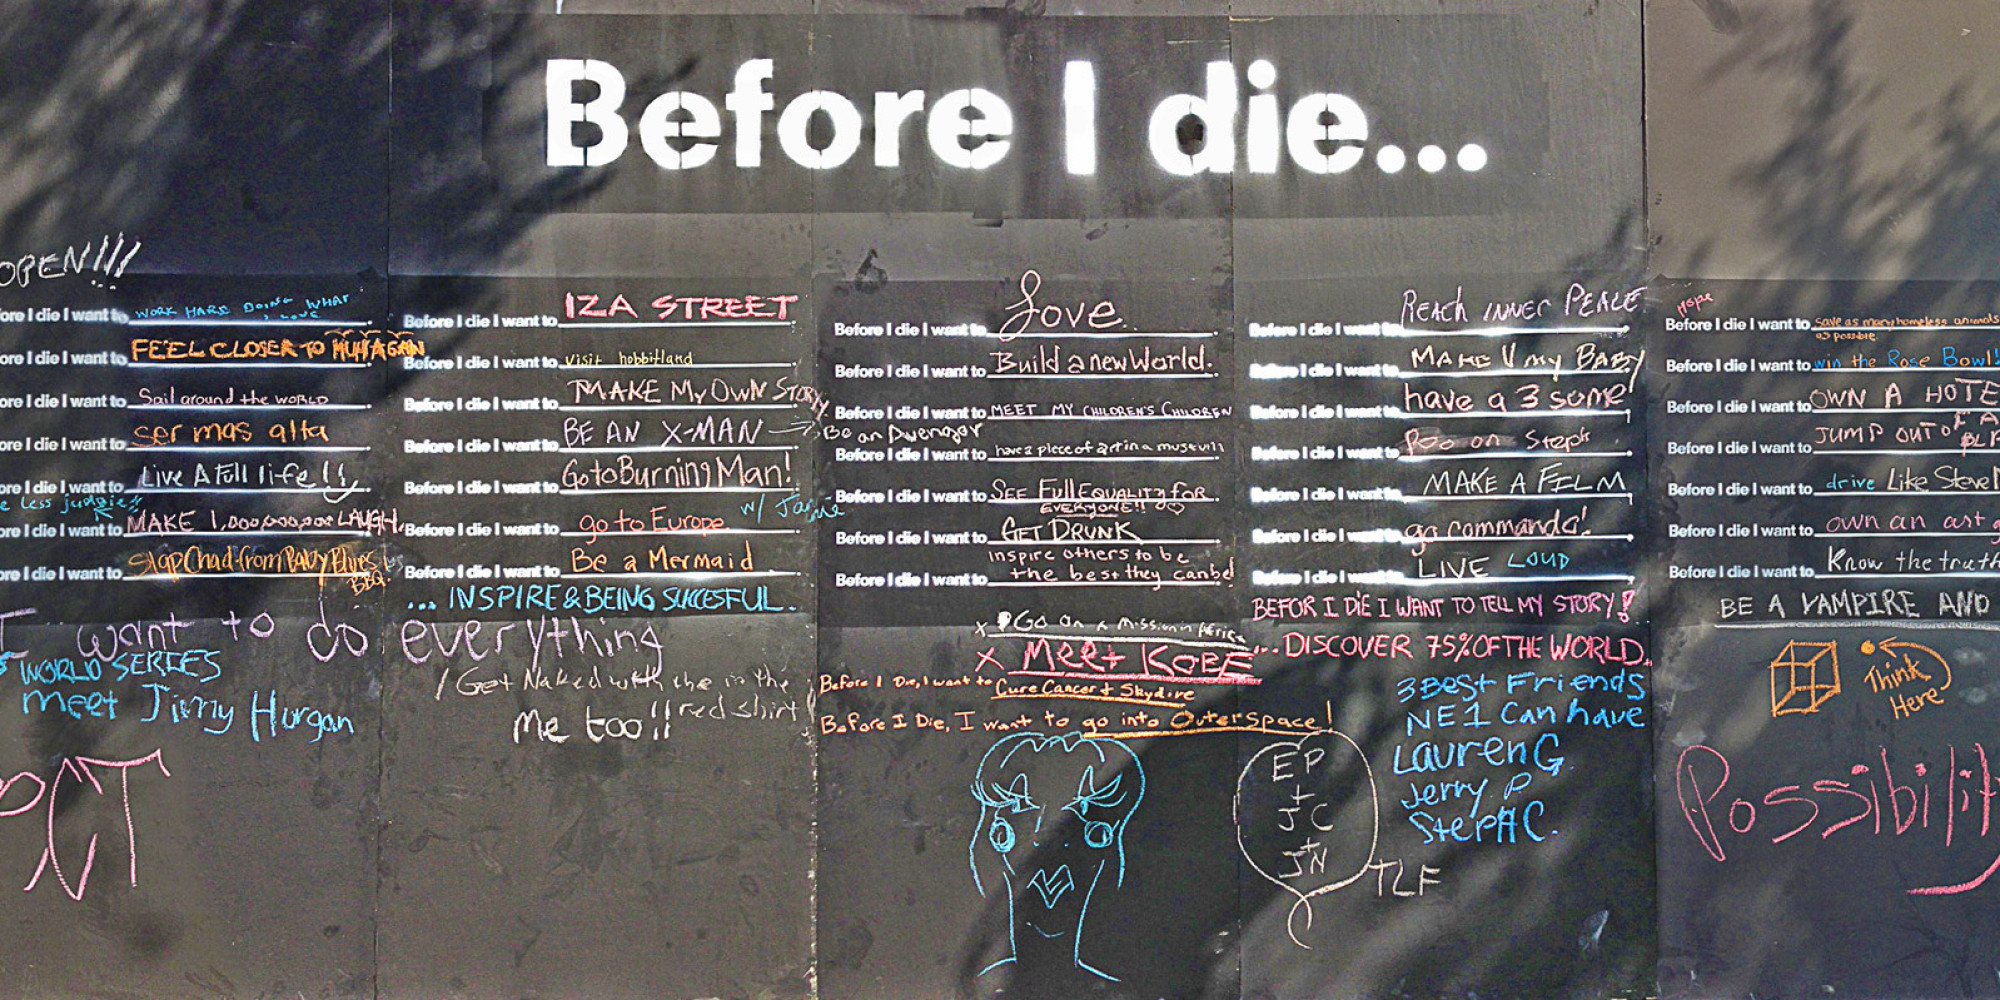 Before I die...
OPEN!!!
ore I die I want to WORK HARD DOING WHAT I LOVE
ore I die I want to FEEL CLOSER TO
ore I die I want to Sail around the WORLD.
ore I die I want to ser mas alta
ore I die I want to LIVE A FULL life!!
e less judgie!!
ore I die I want to MAKE 1,000,000,000 LAUGH.
ore I die I want to Slap Chad from Baby Blues BBQ.
I want to do everything
WORLD SERIES
meet Jimy Horgan
PCT
Before I die I want to IZA STREET.
Before I die I want to visit hobbitland
Before I die I want to MAKE MY OWN STORY.
Before I die I want to BE AN X-MAN
Before I die I want to Go to Burning Man!
Before I die I want to go to Europe w/ Jamie
Before I die I want to Be a Mermaid
... INSPIRE & BEING SUCCESFUL.
Get Naked with the in the red shirt!
Me too!!
Before I die I want to Love.
Before I die I want to Build a new World.
Before I die I want to MEET MY CHILDREN'S CHILDREN
Be an Avenger
Before I die I want to have a piece of art in a museum
Before I die I want to SEE Full EQUALITY FOR EVERYONE!!
Before I die I want to GET DRUNK
Before I die I want to inspire others to be the best they can be!
X Go on a mission in
X Meet KOBE
Before I Die, I want to Cure Cancer + Skydive
Before I Die, I want to go into Outerspace!
Before I die I want to REACH INNER PEACE
Before I die I want to MAKE U my BABY
Before I die I want to have a 3 some!
Before I die I want to Poo on Steph
Before I die I want to MAKE A FILM
Before I die I want to go commando!
Before I die I want to LIVE LOUD
BEFOR I DIE I WANT TO TELL MY STORY!
...DISCOVER 75% OF THE WORLD.
3 BEST Friends
NE1 Can have
Lauren G.
Jerry P
Steph C.
EP
+
JC
+
JN
TLF
Hope
Before I die I want to save as many homeless animals as possible.
Before I die I want to win the Rose Bowl!
Before I die I want to OWN A HOTE
Before I die I want to JUMP OUT OF A PLA
Before I die I want to drive Like Steve
Before I die I want to own an art g
Before I die I want to Know the truth
BE A VAMPIRE AND
Think
Here
Possibility